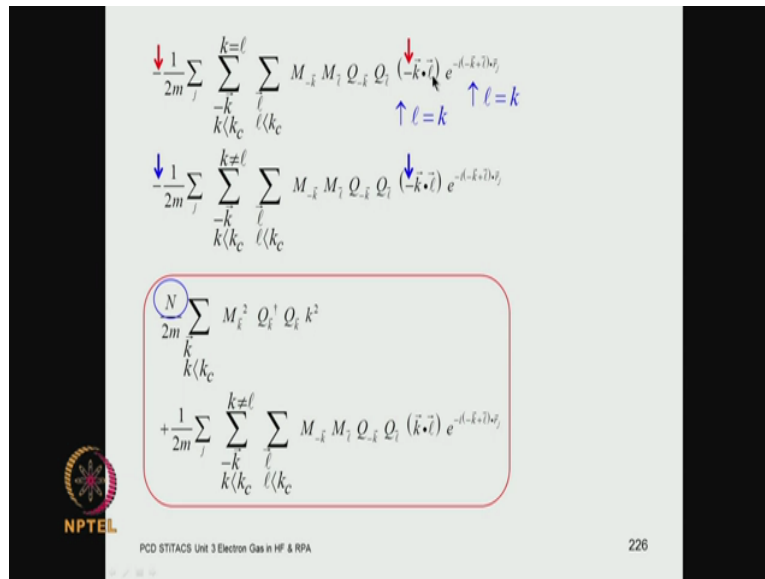 k=ℓ
-1/2m ∑_j ∑_{-k⃗, k⟨k_c} ∑_{ℓ⃗, ℓ⟨k_c} M_{-k⃗} M_{ℓ⃗} Q_{-k⃗} Q_{ℓ⃗} (-k⃗•ℓ⃗) e^{-i(-k⃗+ℓ⃗)•r⃗_j}
↑ ℓ = k ↑ ℓ = k
k≠ℓ
-1/2m ∑_j ∑_{-k⃗, k⟨k_c} ∑_{ℓ⃗, ℓ⟨k_c} M_{-k⃗} M_{ℓ⃗} Q_{-k⃗} Q_{ℓ⃗} (-k⃗•ℓ⃗) e^{-i(-k⃗+ℓ⃗)•r⃗_j}
N/2m ∑_{k⃗, k⟨k_c} M_{k⃗}² Q_{k⃗}† Q_{k⃗} k²
k≠ℓ
+1/2m ∑_j ∑_{-k⃗, k⟨k_c} ∑_{ℓ⃗, ℓ⟨k_c} M_{-k⃗} M_{ℓ⃗} Q_{-k⃗} Q_{ℓ⃗} (k⃗•ℓ⃗) e^{-i(-k⃗+ℓ⃗)•r⃗_j}
NPTEL
PCD STiTACS Unit 3 Electron Gas in HF & RPA 226